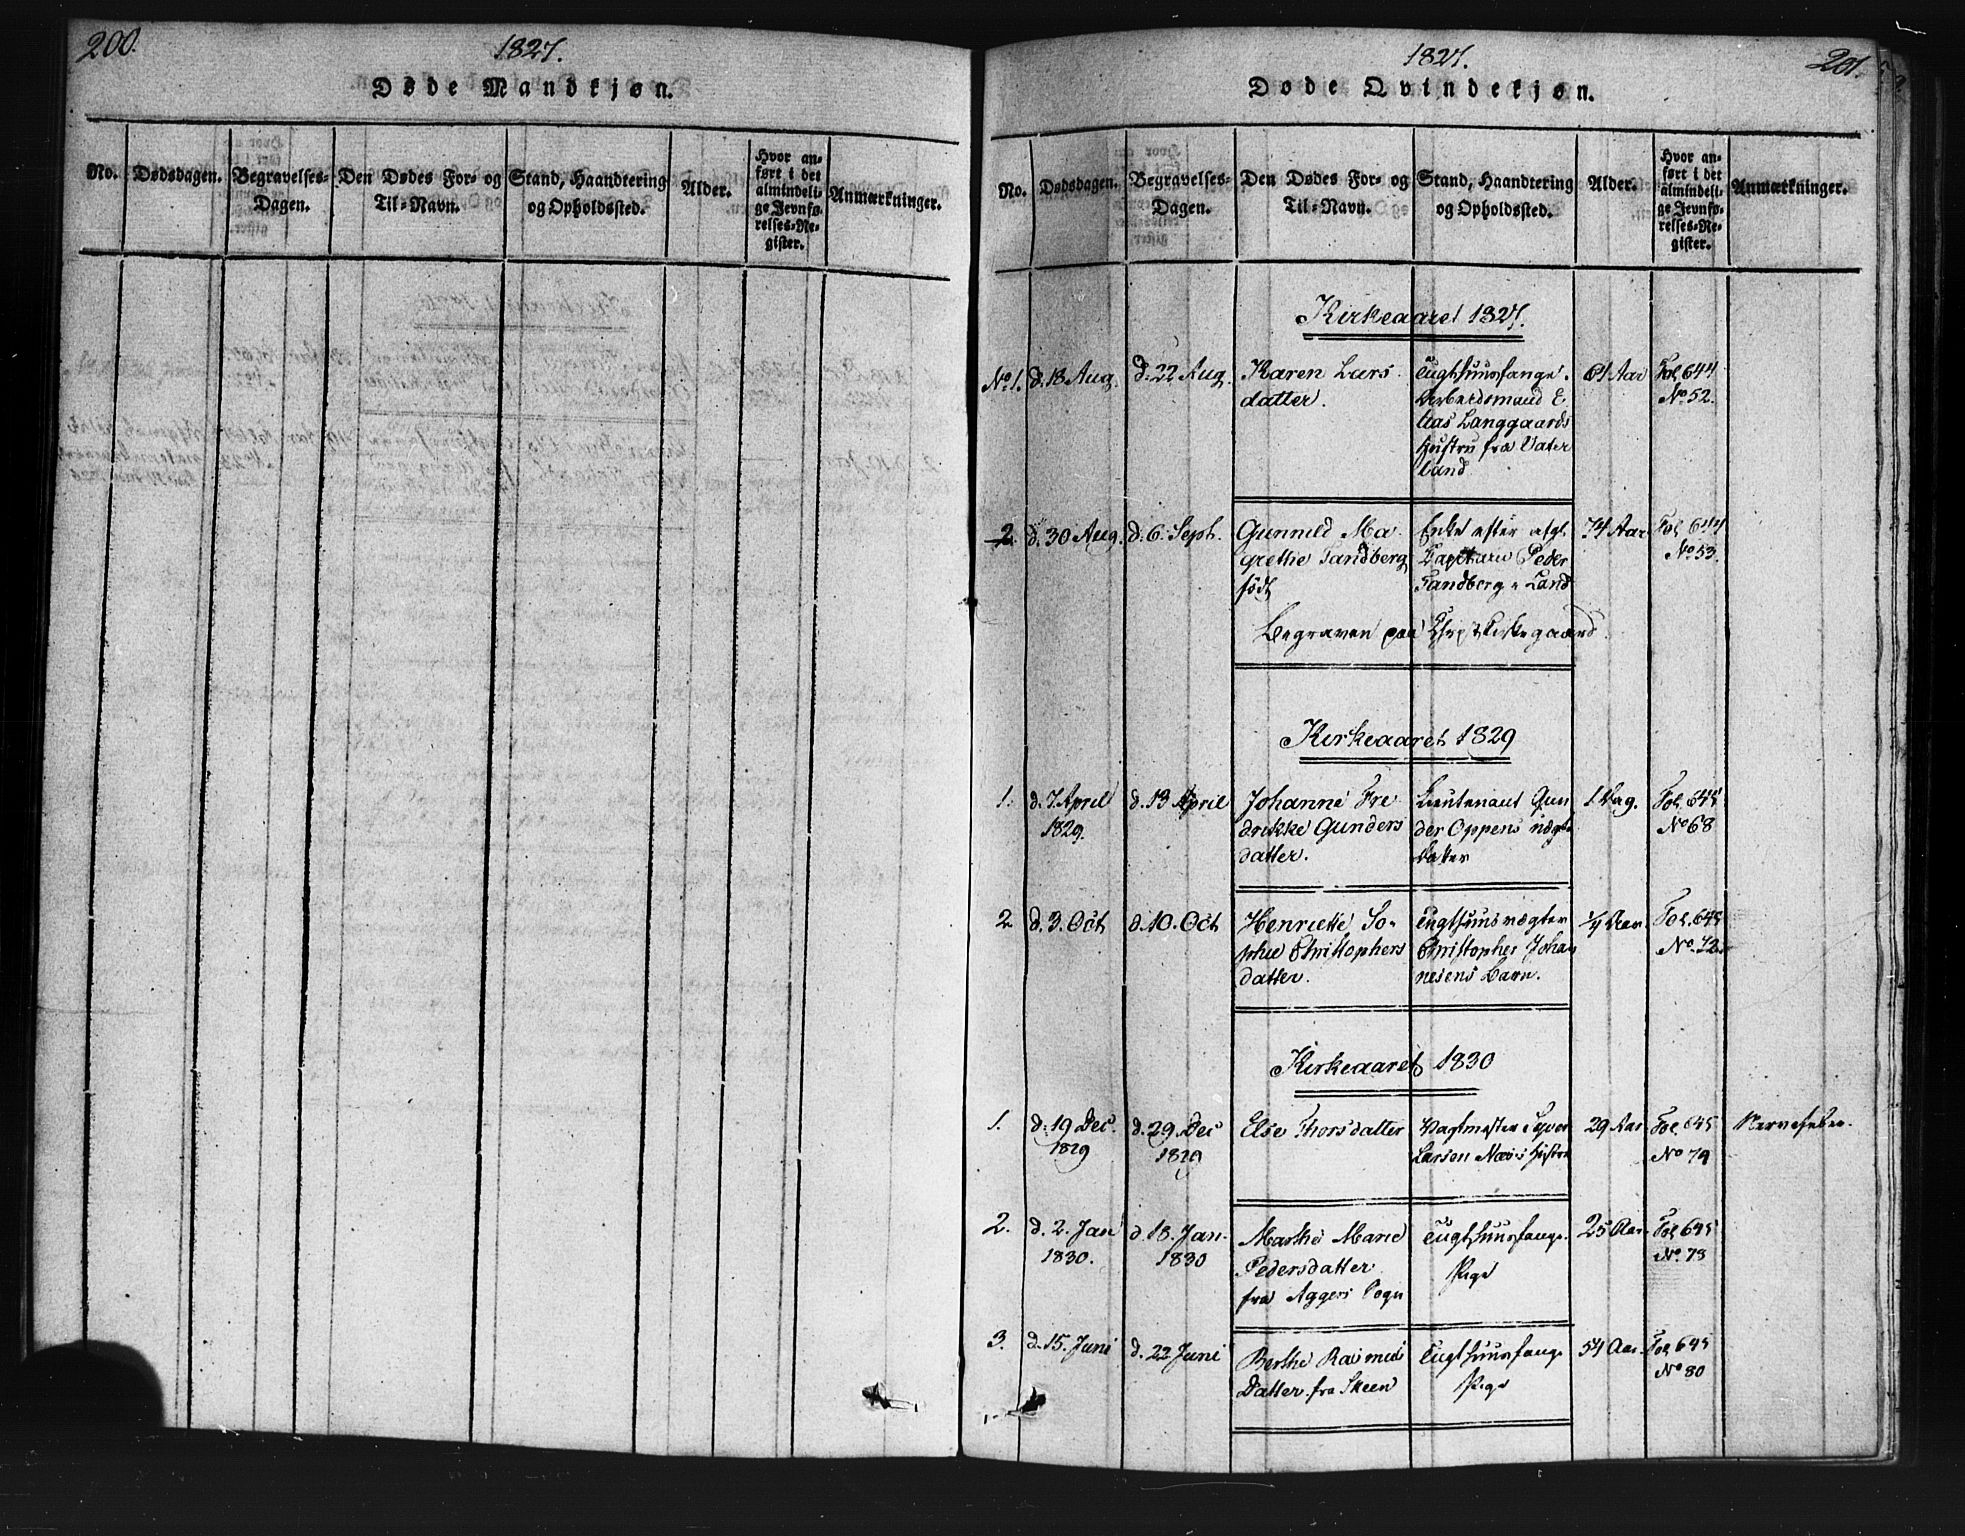 200.
1827.
Døde Mandkjøn.
No.
Dødsdagen.
Begravelses-
Dagen.
Den Dødes For- og
Til-Navn.
Stand, Haandtering
og Opholdssted.
Alder.
Hvor an-
ført i det
almindeli-
ge Jevnfø-
relses-Re-
gister.
Anmærkninger.
1827.
201.
Døde Qvindekjøn.
No.
Dødsdagen.
Begravelses-
Dagen.
Den Dødes For- og
Til-Navn.
Stand, Haandtering
og Opholdssted.
Alder.
Hvor an-
ført i det
almindeli-
ge Jevnfø-
relses-Re-
gister.
Anmærkninger.
Kirkeaaret 1827.
No 1.
d. 18 Aug.
d. 22 Aug.
Karen Lars
datter.
Tugthuusfange.
Arbeidsmand E
Langgaards
Hustru fra Vater
land
61 Aar
Fol 644
No 52.
2.
d. 30 Aug.
d. 6. Sept.
Gunnild Ma
grethe Sandberg
født
Enke efter afg.
Capitain Peder
Sandberg
74 Aar
Fol 644
No 53.
Begraven paa Christ Kirkegaard
Kirkeaaret 1829
1.
d. 7 April
1829.
d. 13 April
Johanne Fre
drikke Gunders
datter.
Lieutenant Gun
der Oppens uægte
Datter
1 Dag.
Fol. 645
No 68
2
d. 3. Oct
d. 10. Oct
Henriette So-
phie Christophers
datter.
Tugthuusvægter
Christopher Johan
nesens Barn.
1/4 Aar.
Fol. 645
No. 72.
Kirkeaaret 1830
1.
d. 19 Dec.
1829
d. 29 Dec
1829
Else Thorsdatter
Vagtmester Syver
Larsen Næss Hustru
29 Aar
Fol 645
No 79
Nervefeber.
2.
d. 2. Jan
1830.
d. 18. Jan.
1830
Marthe Marie
Pedersdatter
fra Aggers Sogn
Tugthuusfange.
Pige
25 Aar
Fol 645
No. 78
3.
d. 15. Juni
d. 22 Juni
Berthe Rasmus
Datter fra Skeen
Tugthuusfange
Pige
54 Aar.
Fol 645
No 80